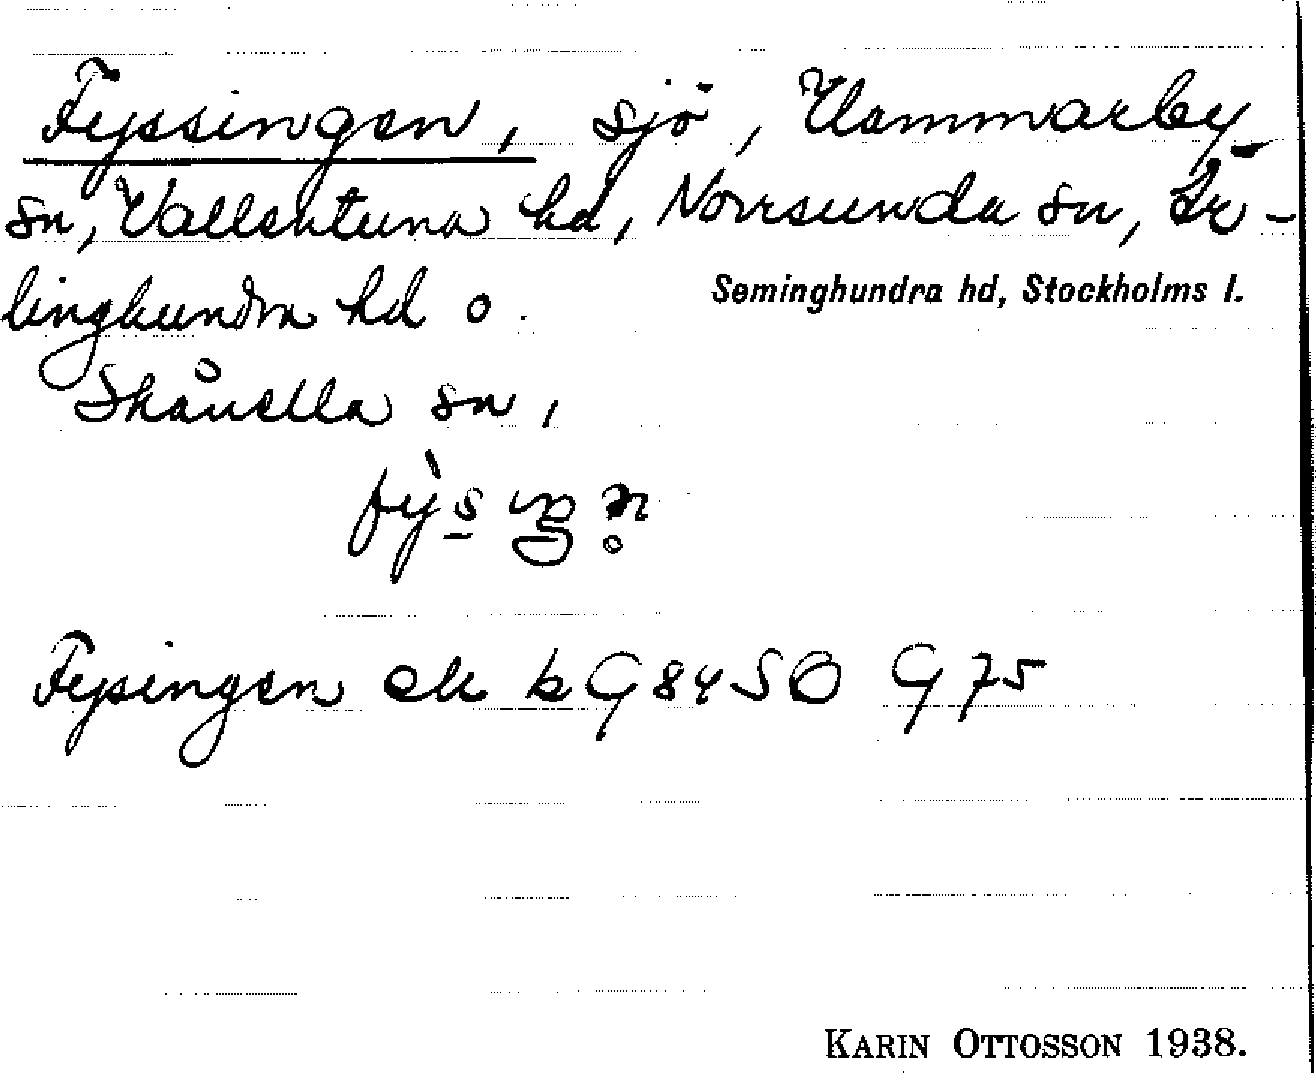 Fyssingen, sjö, Hammarby
sn, Vallentuna hd, Norrsunda sn, Är-
linghundra hd o. Seminghundra hd, Stockholms l.
Skånella sn,
Fysingen ek bl 84 SO 75
KARIN OTTOSSON 1938.